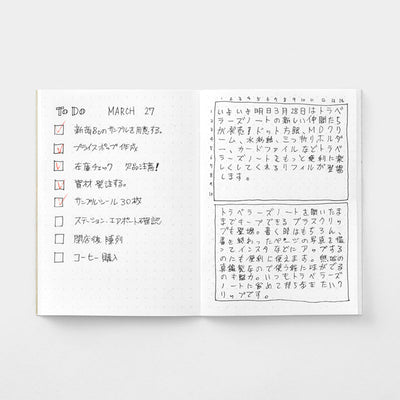 To Do MARCH 27
新商品のサンプルを用意する。
プライスポップ作成
在庫チェック 欠品注意!
資材発注する。
サンプルシール 30枚
ステーション、エアポート確認
閉店後 陳列
コーヒー購入
いよいよ明日3月28日はトラベラ
ーズノートの新しい仲間たち
が発売!ドット方眼、MDクリ
ーム、水彩紙、三つ折りホルダ
ー、カードファイルなどトラベ
ラーズノートをもっと便利に楽
しくしてくれるリフィルが登場
します。
トラベラーズノートを開いたま
まキープできるブラスクリッ
プも登場。書く時はもちろん、
書き終わったページの写真を撮
ってインスタなどにアップする
のにも便利に使えます。無垢の
真鍮製なので使う程に味がでる
のも魅力。いつもトラベラーズ
ノートに留めて持ち歩きたいク
リップです。